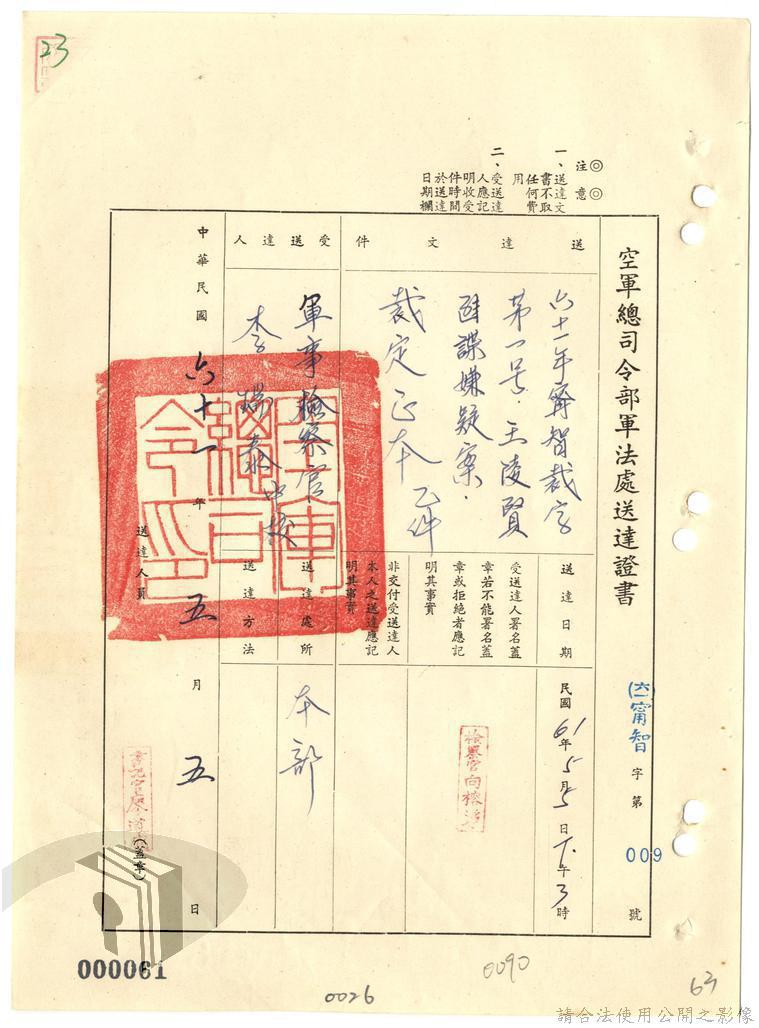 23
◎注意◎
一、送達文
書不取
任何費
用
二、受送達
人應記
明收受
件時間
於送達
日期欄
空軍總司令部軍法處送達證書
(六一)甯智字第009號
送達文件
六十一年甯智裁字
第一号．王陵賢
匪諜嫌疑案．
裁定正本乙件
受送達人
軍事檢察官
李 泰中校
送達日期
民國61年5月5日下午3時
受送達人署名蓋
章若不能署名蓋
章或拒絕者應記
明其事實
檢察官向
非交付受送達人
本人之送達應記
明其事實
送達處所
本部
送達方法
中華民國六十一年五月五日
空軍總司令印
送達人員
(蓋章)
000061
0026
0090
63
請合法使用公開之影像